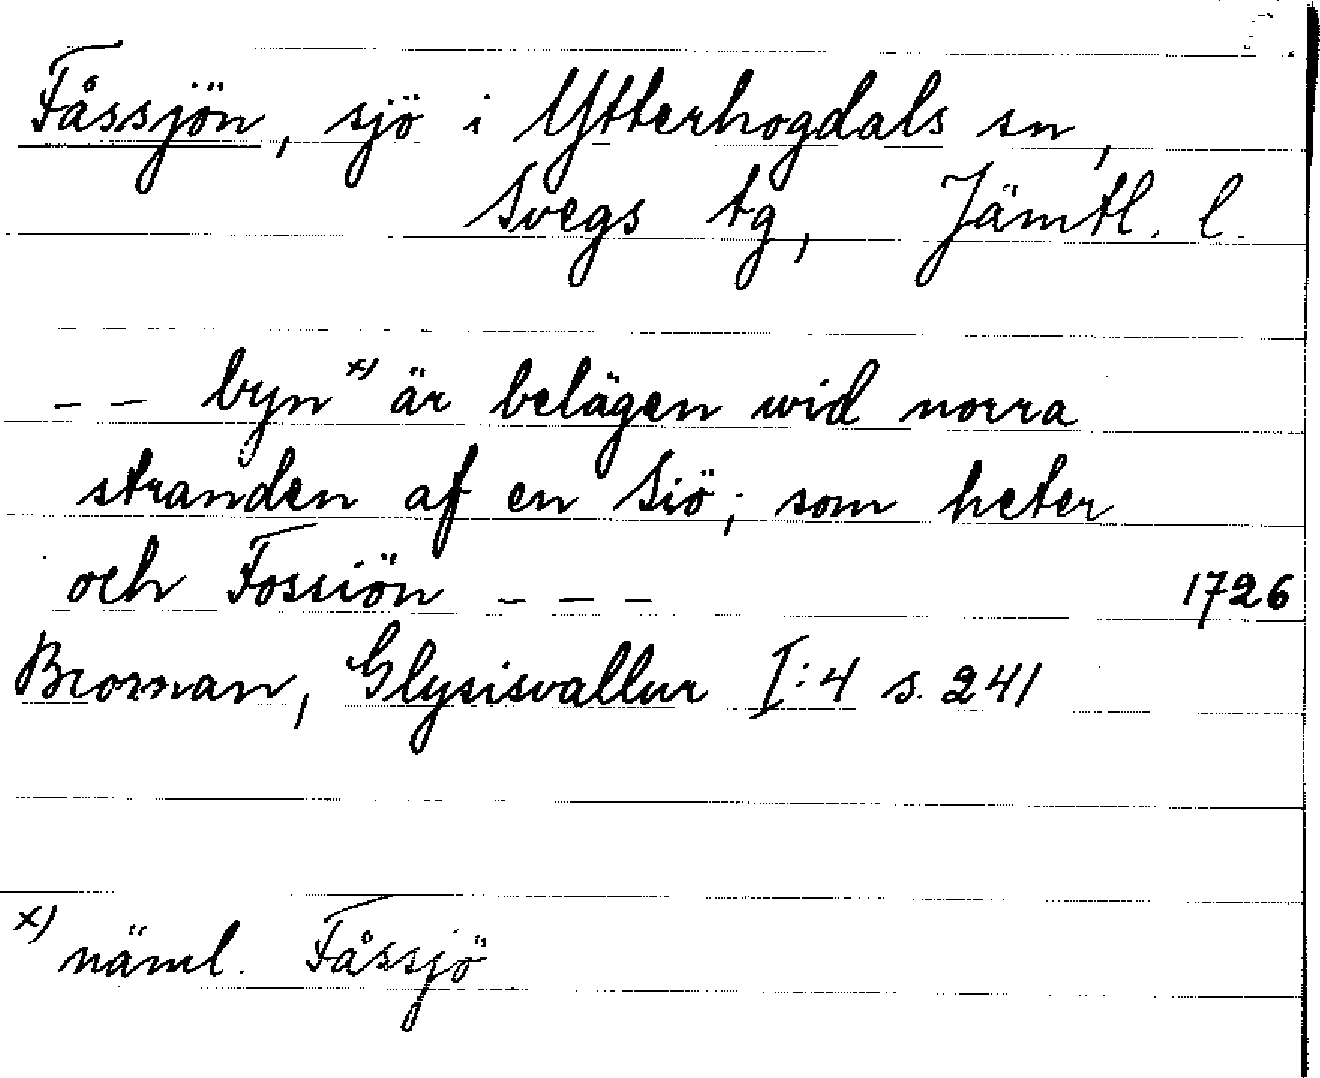 Fåssjön, sjö i Ytterhogdals sn,
Svegs tg, Jämtl. l.
-- byn x) är belägen wid norra
stranden af en Siö; som heter
och Fossiön --- 1726
Broman, Glysisvallur I:4 s. 241
x) näml. Fåssjö